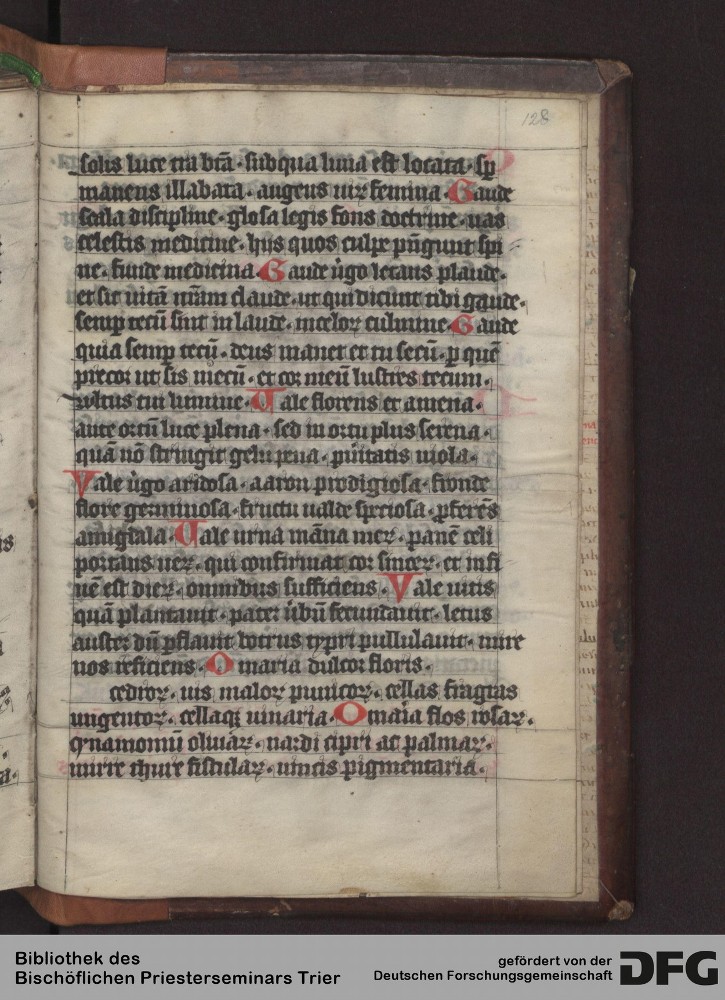 128
solis luce trabeā · sub qua luna est locata · sp
manens illabata · augens uiꝝ femina · Gaude
scola discipline · glosa legis fons doctrine · uas
celestis medicine · hijs quos culpe pūgiunt spi
ne · funde medicina · Gaude ůgo letans plaude ·
et sit uitā nr̄am claude · ut qui dicunt tibi gaude ·
semp tecū sint in laude · in celoꝝ culmine · Gaude
quia semp tecū · deus manet et tu secū · p quē
precor ut sis mecū · et cor meū lustres tecum ·
uultus tui lumine · Vale florens et amena ·
ante ortū luce plena · sed in ortu plus serena ·
quā nō stringit gelu pena · puritatis uiola ·
Vale ůgo aridosa · aaron prodigiosa · fronde
flore germinosa · fructu ualde speciosa · pferēs
amigdala · Vale urna māna meꝝ · panē celi
portans ueꝝ · qui confirmat cor sinceꝝ · et infi
nē est dieꝝ · omnibus sufficiens · Vale uitis
quā plantauit · pater ůbū fecundauit · letus
auster dū pflauit botrus cypri pullulauit · mire
nos reficiens · O maria dulcor floris ·
cedroꝝ · uis maloꝝ punicoꝝ · cellas fragrās
ungentoꝝ · cellaqꝫ uinaria · O maīa flos rosaꝝ ·
cynamomū oliuaꝝ · nardi cipri ac palmaꝝ ·
mirre thure fistulaꝝ · uincis pigmentaria ·
Bibliothek des
Bischöflichen Priesterseminars Trier
gefördert von der
Deutschen Forschungsgemeinschaft
DFG